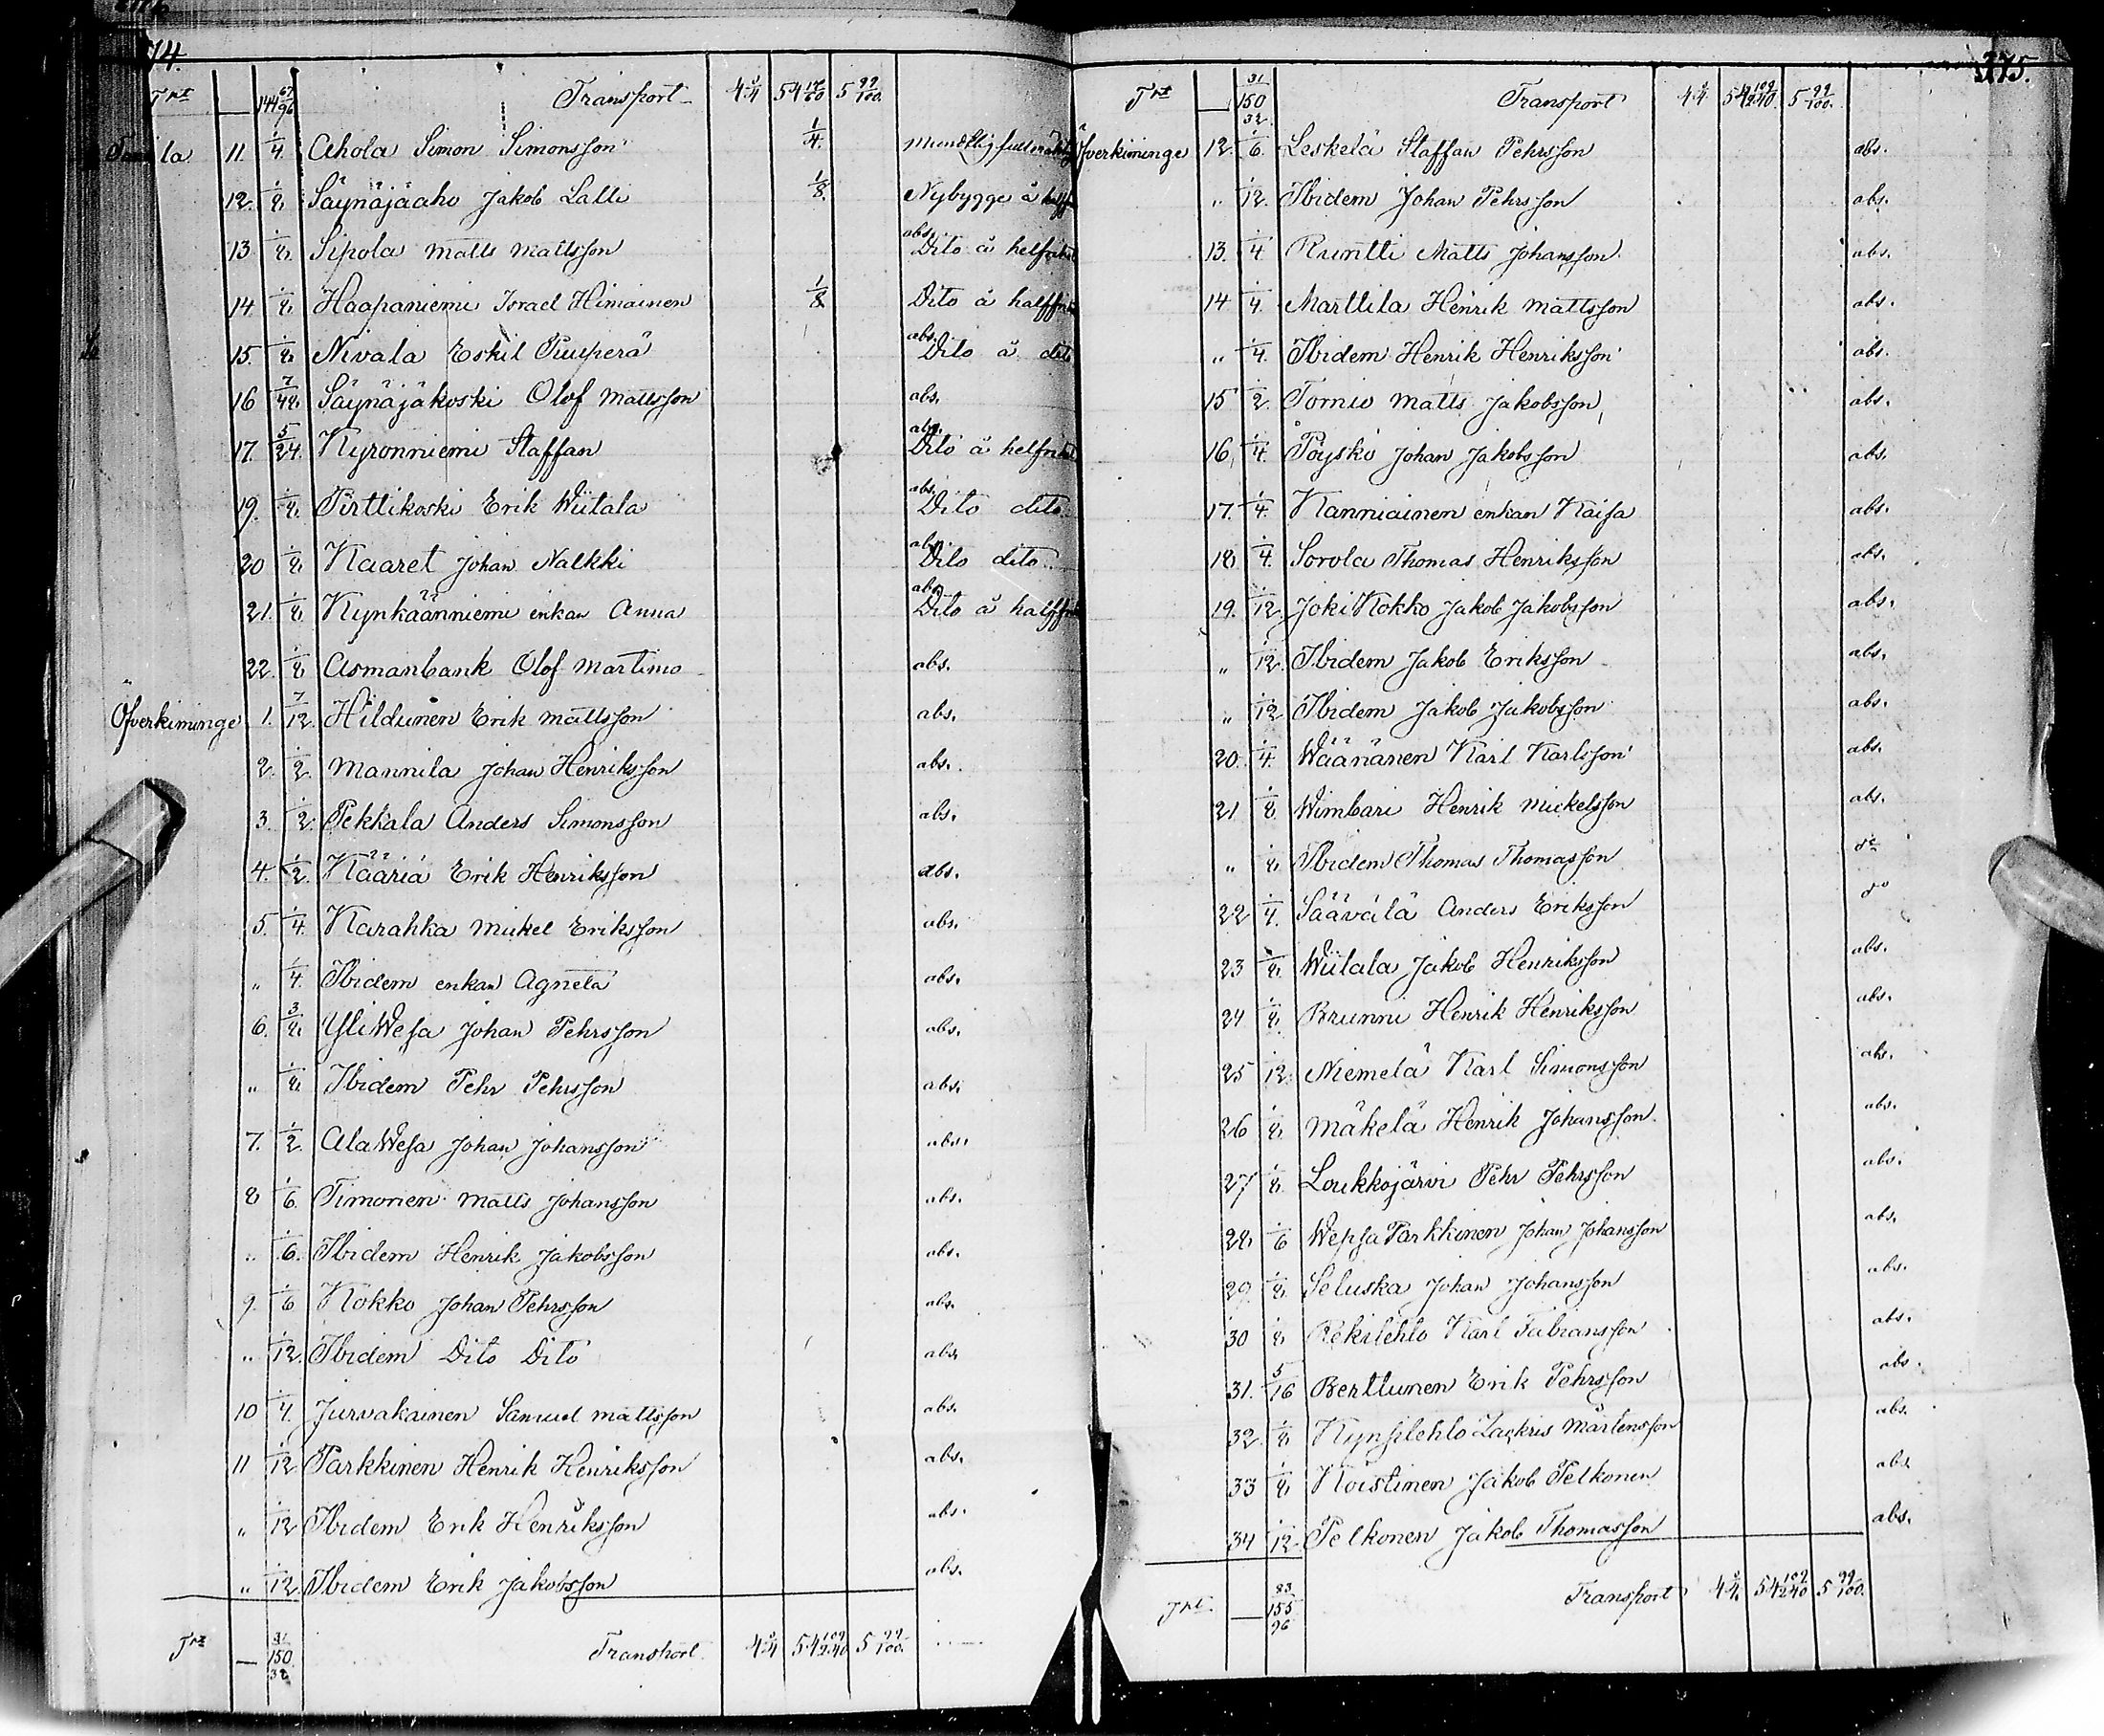 74.
Trt — 144 67/96 Transport 4 3/4 54 12/60 5 99/100.
la 11. 1/4. Ahola Simon Simonsson 1/4.
12. 1/8 Säynäjäaho Jakob Lalli 1/8. Nybygge å
13 1/8 Sipola Matts Mattsson abs. Dito å
14. 1/8 Haapaniemi Israel Himainen 1/8 Dito å
15. 1/8 Nivala Eskil Puuperä abs. Dito å dito
16 7/48 Säynäjäkoski Olof Mattsson abs.
17. 5/24. Kyronniemi Staffan abs. Dito å
19. 1/8 Pirttikoski Erik Wiitala abs. Dito dito
20 1/8 Kaaret Johan Nalkki abs. Dito dito
21. 1/8 Kynkäänniemi enkan Anna abs. Dito å
22. 1/8 Asmanbank Olof Martimo abs.
Öfverkiminge 1. 7/12. Hildunen Erik Mattsson abs.
2. 1/2. Mannila Johan Henriksson abs.
3. 1/2 Pekkala Anders Simonsson abs.
4. 1/2. Kääriä Erik Henriksson abs.
5. 1/4. Karahka Mickel Eriksson abs.
„ 1/4. Ibidem enkan Agneta abs.
6. 3/8 YliWesa Johan Pehrsson abs.
„ 1/8 Ibidem Pehr Pehrsson abs.
7. 1/2. AlaWesa Johan Johansson abs.
8 1/6. Timonen Matts Johansson abs.
„ 1/6. Ibidem Henrik Jakobsson abs.
9. 1/6 Kokko Johan Pehrsson abs.
„ 1/12. Ibidem Dito Dito abs.
10 1/4. Jurvakainen Samuel Mattsson abs.
11 1/12 Parkkinen Henrik Henriksson abs.
„ 1/12 Ibidem Erik Henriksson abs.
„ 1/12. Ibidem Erik Jakobsson abs.
Trt — 150 31/32 Transport 4 3/4 54 109/240 5 99/100.
375.
Trt — 150 31/32 Transport 4 3/4 54 109/240. 5 99/100.
Öfverkiminge 12. 1/6. Leskelä Staffan Pehrsson abs.
„ 1/12. Ibidem Johan Pehrsson abs.
13. 1/4 Runtti Matts Johansson abs.
14 1/4. Marttila Henrik Mattsson abs.
„ 1/4. Ibidem Henrik Henriksson abs.
15 1/2. Tornio Matts Jakobsson abs.
16 1/4. Pöyskö Johan Jakobsson abs.
17. 1/4. Kanniainen enkan Kaisa abs.
18 1/4. Sorola Thomas Henriksson abs.
19. 1/12 JokiKokko Jakob Jakobsson abs.
„ 1/12 Ibidem Jakob Eriksson abs.
„ 1/12 Ibidem Jakob Jakobsson abs.
20. 1/4. Wäänänen Karl Karlsson abs.
21 1/8 Wimbari Henrik Mickelsson abs.
„ 1/8 Ibidem Thomas Thomasson do
22 1/4. Säävälä Anders Eriksson do
23 1/8 Wiitala Jakob Henriksson abs.
24 1/8 Brunni Henrik Henriksson abs.
25 1/12. Niemelä Karl Simonsson abs.
26 1/8 Mäkelä Henrik Johansson abs.
27 1/8 Loukkojärvi Pehr Pehrsson abs.
28 1/6 WepsaParkkinen Johan Johansson abs.
29 1/8 Seluska Johan Johansson abs.
30 1/8 Rekilehto Karl Fabiansson abs.
31. 5/16 Berttunen Erik Pehrsson abs.
32. 1/8 Kynsilehto Zackris Mårtensson abs.
33 1/8 Koistinen Jakob Pelkonen abs.
34 1/12 Pelkonen Jakob Thomasson abs.
Trt. — 155 83/96 Transport 4 3/4. 54 109/240 5 99/100.